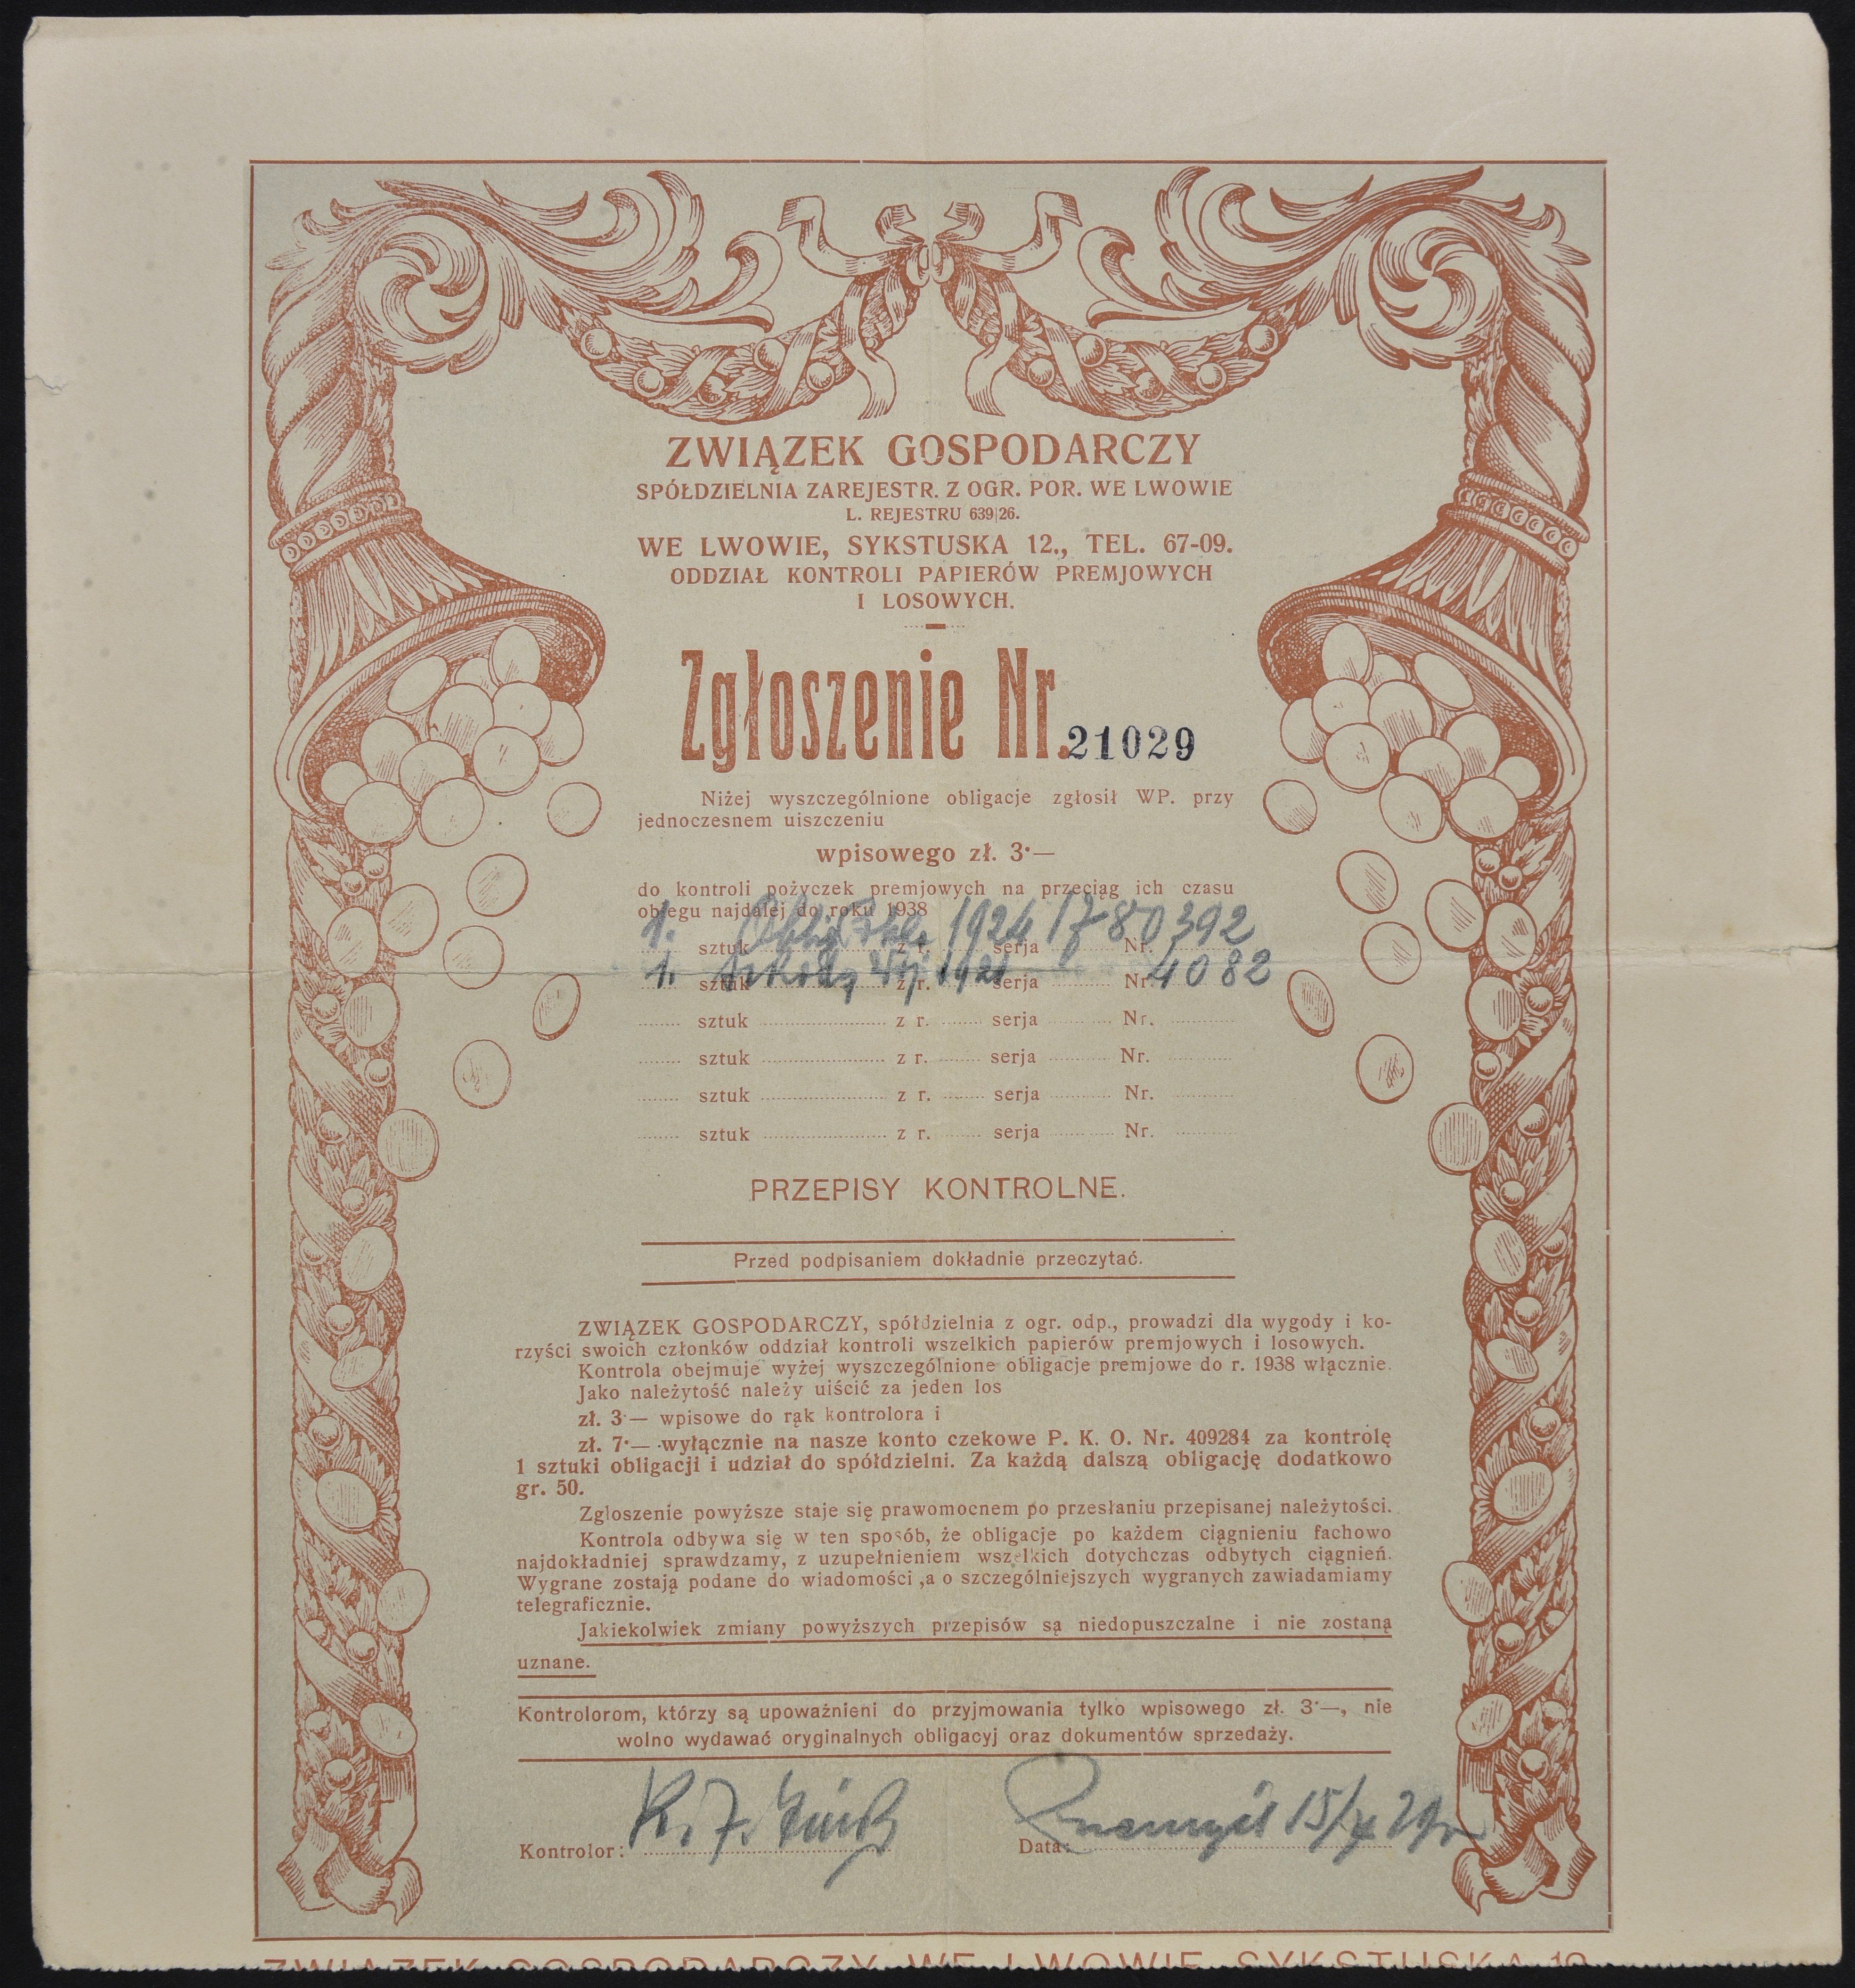 ZWIĄZEK GOSPODARCZY
SPÓŁDZIELNIA ZAREJESTR. Z OGR. POR. WE LWOWIE
L. REJESTRU 639|26.
WE LWOWIE, SYKSTUSKA 12., TEL. 67-09.
ODDZIAŁ KONTROLI PAPIERÓW PREMJOWYCH
I LOSOWYCH.
Zgłoszenie Nr. 21029
Niżej wyszczególnione obligacje zgłosił WP. przy
jednoczesnem uiszczeniu
wpisowego zł. 3·—
do kontroli pożyczek premjowych na przeciąg ich czasu
obiegu najdalej do roku 1938
1. sztuk z r. 1924 serja Nr. 1780392
1. sztuk z r. serja Nr. 4082
sztuk z r. serja Nr.
sztuk z r. serja Nr.
sztuk z r. serja Nr.
sztuk z r. serja Nr.
PRZEPISY KONTROLNE.
Przed podpisaniem dokładnie przeczytać.
ZWIĄZEK GOSPODARCZY, spółdzielnia z ogr. odp., prowadzi dla wygody i ko-
rzyści swoich członków oddział kontroli wszelkich papierów premjowych i losowych.
Kontrola obejmuje wyżej wyszczególnione obligacje premjowe do r. 1938 włącznie.
Jako należytość należy uiścić za jeden los
zł. 3·— wpisowe do rąk kontrolora i
zł. 7·— wyłącznie na nasze konto czekowe P. K. O. Nr. 409284 za kontrolę
1 sztuki obligacji i udział do spółdzielni. Za każdą dalszą obligację dodatkowo
gr. 50.
Zgloszenie powyższe staje się prawomocnem po przesłaniu przepisanej należytości.
Kontrola odbywa się w ten sposób, że obligacje po każdem ciągnieniu fachowo
najdokładniej sprawdzamy, z uzupełnieniem wszelkich dotychczas odbytych ciągnień.
Wygrane zostają podane do wiadomości ,a o szczególniejszych wygranych zawiadamiamy
telegraficznie.
Jakiekolwiek zmiany powyższych przepisów są niedopuszczalne i nie zostaną
uznane.
Kontrolorom, którzy są upoważnieni do przyjmowania tylko wpisowego zł. 3·—, nie
wolno wydawać oryginalnych obligacyj oraz dokumentów sprzedaży.
Kontrolor: Data: Przemyśl
ZWIĄZEK GOSPODARCZY WE LWOWIE SYKSTUSKA 12